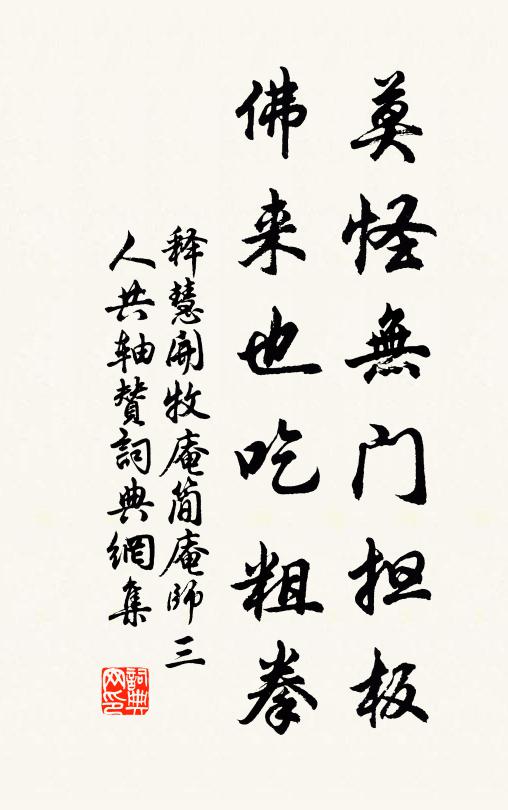 莫怪無门担板
佛来也吃粗拳
释慧開牧庵简庵師三
人共轴赞詞典網集
詞典网印